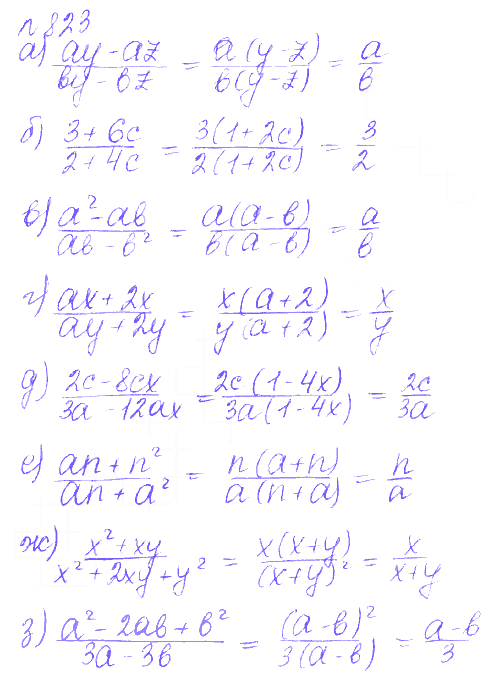 п 823
а) (ay - az)/(by - bz) = a(y - z)/b(y - z) = a/b
б) (3 + 6c)/(2 + 4c) = 3(1 + 2c)/2(1 + 2c) = 3/2
в) (a² - ab)/(ab - b²) = a(a - b)/b(a - b) = a/b
г) (ax + 2x)/(ay + 2y) = x(a + 2)/y(a + 2) = x/y
д) (2c - 8cx)/(3a - 12ax) = 2c(1 - 4x)/3a(1 - 4x) = 2c/3a
е) (an + n²)/(an + a²) = n(a + n)/a(n + a) = n/a
ж) (x² + xy)/(x² + 2xy + y²) = x(x + y)/(x + y)² = x/(x + y)
з) (a² - 2ab + b²)/(3a - 3b) = (a - b)²/3(a - b) = (a - b)/3